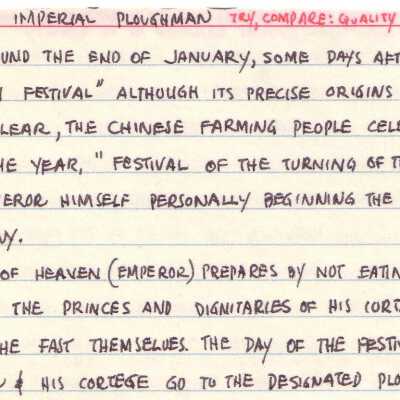 IMPERIAL PLOUGHMAN TRY, COMPARE: QUALITY
UND THE END OF JANUARY, SOME DAYS AFT
FESTIVAL" ALTHOUGH ITS PRECISE ORIGINS
LEAR, THE CHINESE FARMING PEOPLE CEL
HE YEAR, "FESTIVAL OF THE TURNING OF T
EROR HIMSELF PERSONALLY BEGINNING THE
NY.
OF HEAVEN (EMPEROR) PREPARES BY NOT EATIN
THE PRINCES AND DIGNITARIES OF HIS CORT
HE FAST THEMSELVES. THE DAY OF THE FESTIV
& HIS CORTEGE GO TO THE DESIGNATED PLO